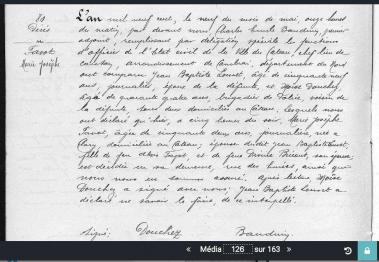 80
Décès
Tacot
Marie Josèphe
L'an mil neuf cent, le neuf du mois de mai, onze heures
du matin, par devant nous, Emile Dauding, premier
adjoint, remplissant par délégation spéciale les fonctions
d'officier de l'Etat civil de la Ville du Cateau, chef-lieu de
canton, arrondissement de Cambrai, département du Nord
ont comparu Jean Baptiste Lenoit, âgé de cinquante neuf
ans, journalier, époux de la défunte, et Moïse Douchez,
âgé de quarante quatre ans, de Police, voisin de
la défunte, tous deux domiciliés au Cateau, lesquels nous
ont déclaré qu'hier, à cinq heures du soir, Marie Josèphe
Tacot, âgée de cinquante deux ans, journalière, née à
domiciliée au Cateau, épouse dudit Jean Baptiste
fille de feu et de feue son épouse,
est décédée en sa demeure, rue des ainsi que
nous nous en sommes assuré. Après lecture, Moïse
Douchez a signé avec nous; Jean Baptiste a
déclaré ne savoir le faire, de ce interpellé.
Signé: Douchez Dauding
« Média 126 sur 163 »